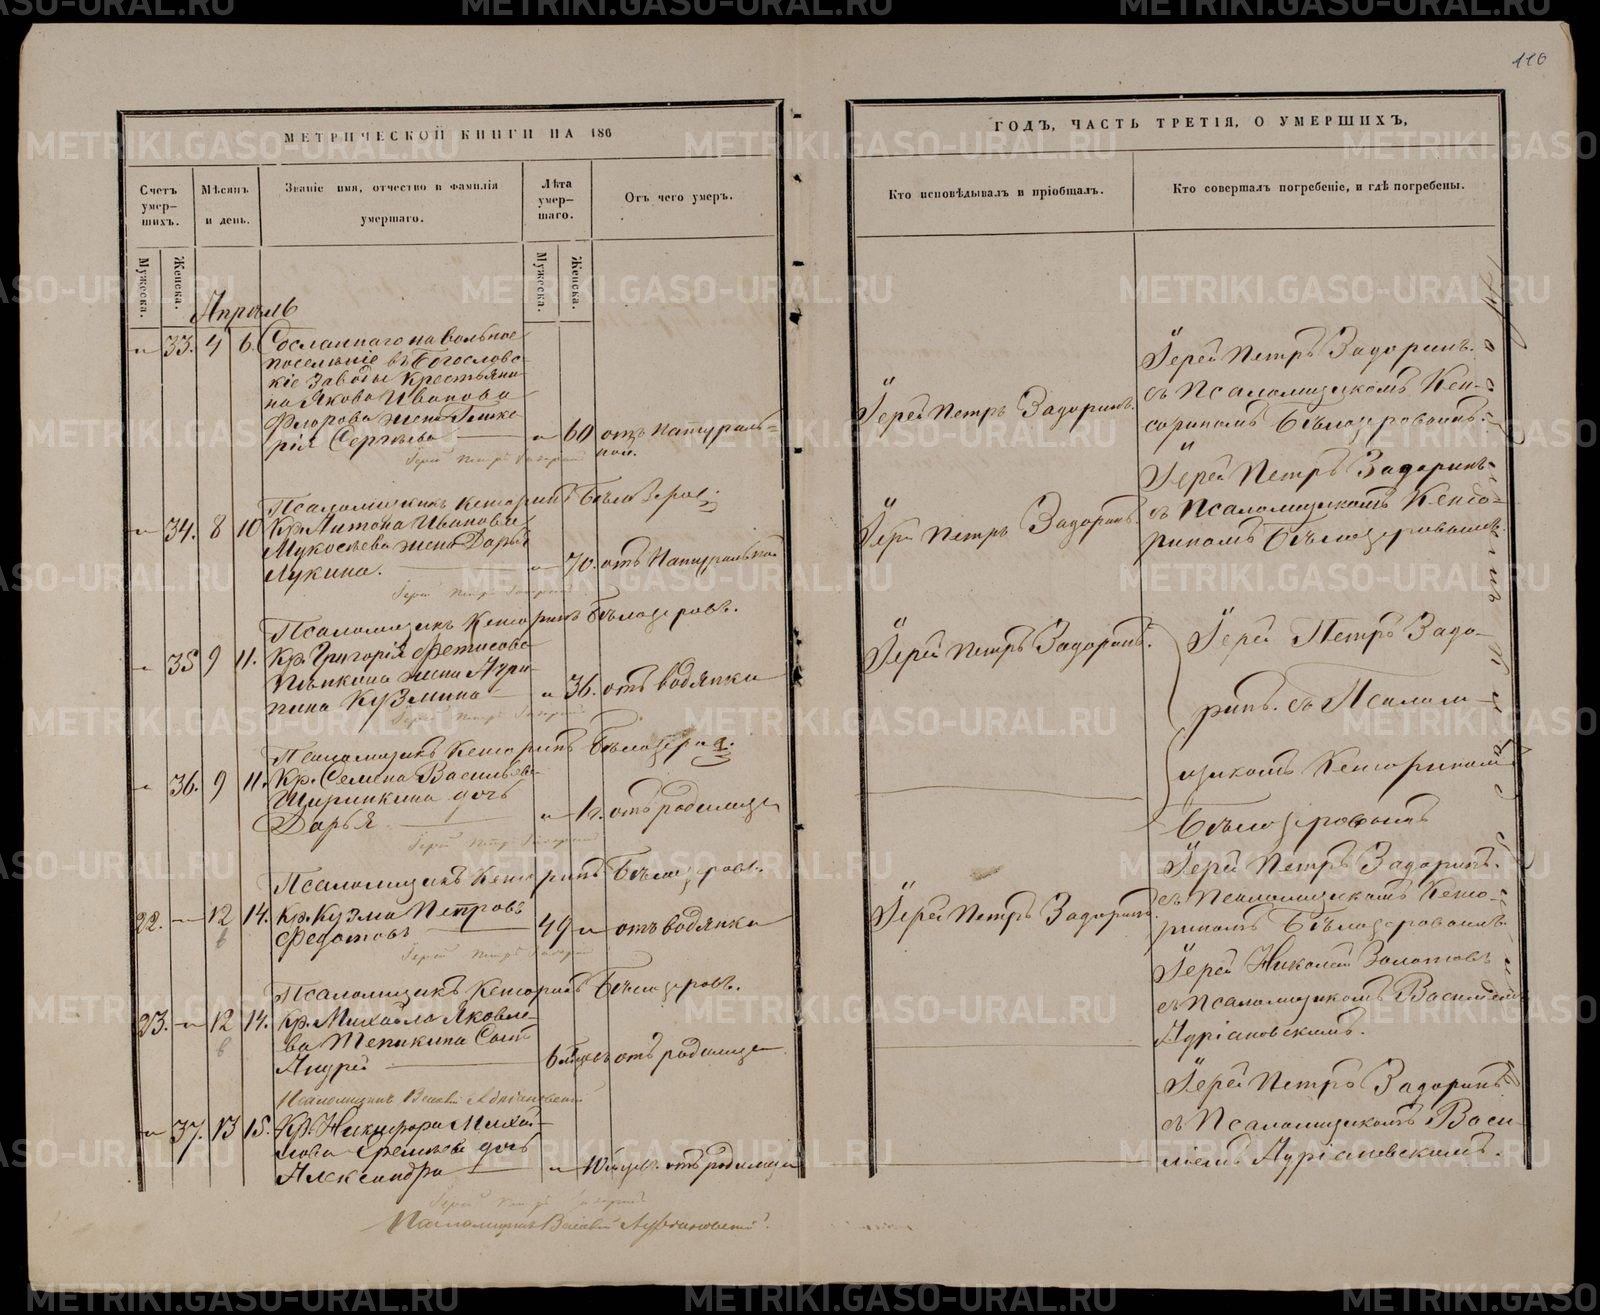 110
МЕТРИЧЕСКОЙ КНИГИ НА 186
ГОДЪ, ЧАСТЬ ТРЕТІЯ, О УМЕРШИХЪ,
Счетъ умер-
шихъ.
Мѣсяцъ
и день.
Званіе имя, отчество и фамилія
умершаго.
Лѣта
умер-
шаго.
Отъ чего умеръ.
Кто исповѣдывалъ и пріобщалъ.
Кто совершалъ погребеніе, и гдѣ погребены.
Мужеска.
Женска.
Мужеска.
Женска.
Апрѣль
33. 4 6. Сосланнаго на вольное
поселеніе въ Богословс-
кіе Заводы Крестьяни-
на Якова Иванова
Флорова жена Глике-
рія Сергѣева 60 отъ натураль-
ной.
Іерей Петръ Задоринъ.
Іерей Петръ Задоринъ.
съ Псаломщикомъ Кен-
сориномъ Бѣлозеровымъ.
Іерей Петръ Задоринъ
Псаломщикъ Кенсоринъ Бѣлозеров:
34. 8 10 Кр. Антона Иванова
Мукосѣева жена Дарья
Лукина. 70. отъ Натуральной
Іерей Петръ Задоринъ.
Іерей Петръ Задоринъ
съ Псаломщикомъ Кенсо-
риномъ Бѣлозеровымъ
Іерей Петръ Задоринъ
Псаломщикъ Кенсоринъ Бѣлозеровъ.
35 9 11. Кр. Григорія Фетисова
жена Агри-
пина Кузмина 36. отъ водянки
Іерей Петръ Задоринъ.
Іерей Петръ Задо-
ринъ. съ Псалом-
щикомъ Кенсориномъ
Бѣлозеровымъ
Іерей Петръ Задоринъ
Псаломщикъ Кенсоринъ Бѣлозеров.
36. 9 11. Кр. Семена Васильева
Ширинкина дочь
Дарья отъ родимца
Іерей Петръ Задоринъ
Псаломщикъ Кенсоринъ Бѣлозеровъ.
22. 12 14. Кр. Кузма Петровъ
Федотовъ 49 отъ водянки
6
Іерей Петръ Задоринъ.
Іерей Петръ Задоринъ.
съ Псаломщикомъ Кенсо-
риномъ Бѣлозеровымъ
Іерей Петръ Задоринъ
Псаломщикъ Кенсоринъ Бѣлозеровъ.
23. 12 14. Кр. Михайла Яковле-
ва сынъ
Андрей 6 отъ родимца
6
Іерей Николай Золотовъ
съ Псаломщикомъ Василіемъ
Адріановскимъ.
Псаломщикъ Василій Адріановскій
37. 13 15. Кр. Никифора Михай-
лова дочь
Александра 10 отъ родимца
Іерей Петръ Задоринъ
съ Псаломщикомъ Васи-
ліемъ Адріановскимъ.
Іерей Петръ Задоринъ
Псаломщикъ Василій Адріановскій.
METRIKI.GASO-URAL.RU